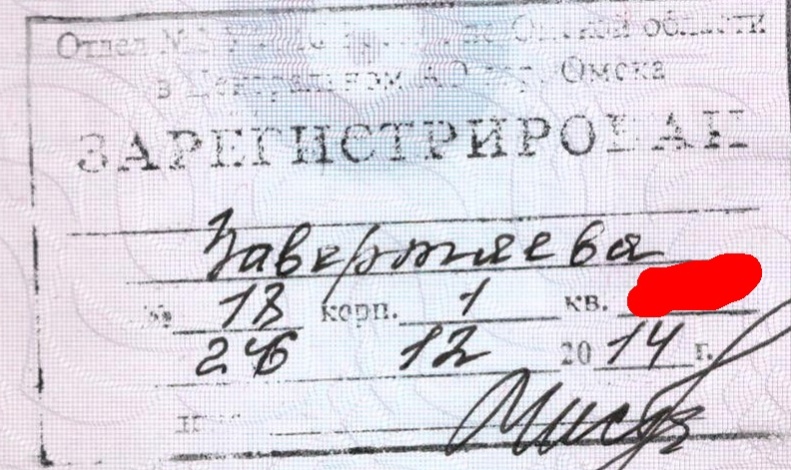 Отдел № Омской области
в Центральном АО гор. Омска
ЗАРЕГИСТРИРОВАН
Заверткяева
№ 18 корп. 1 кв.
26 12 2014 г.